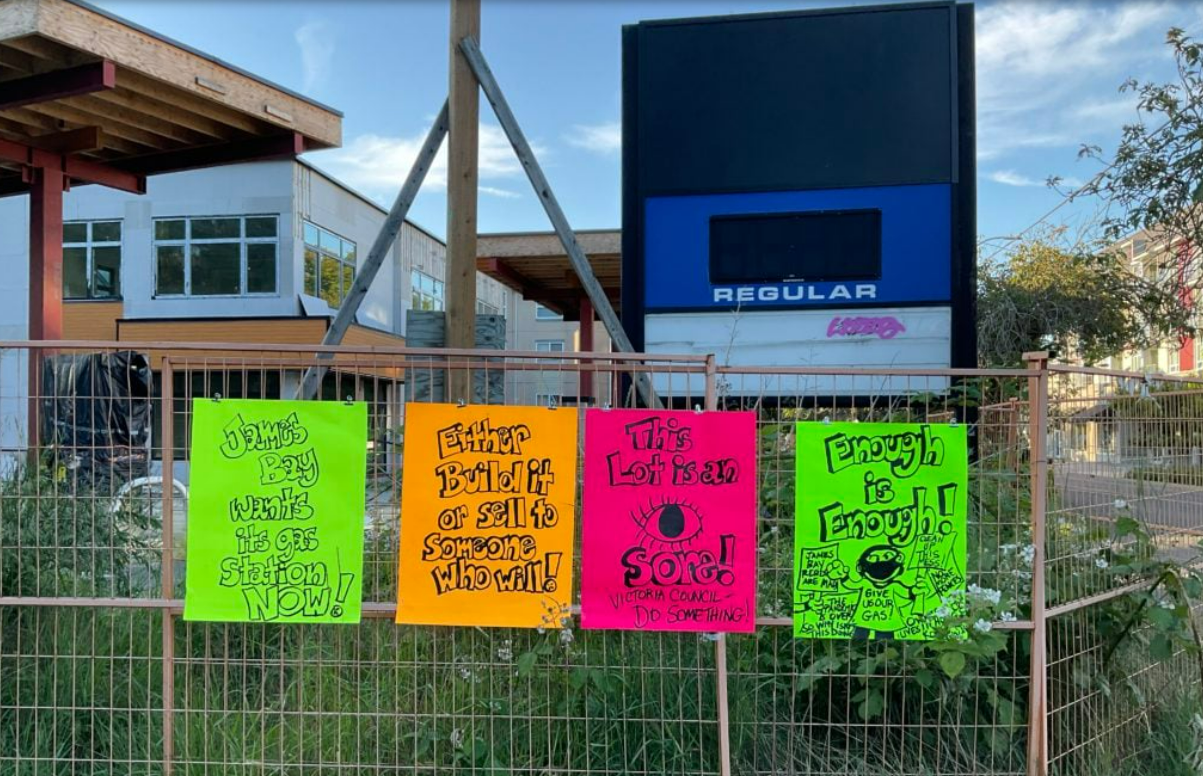 REGULAR
James
Bay
wants
its gas
Station
NOW!
Either
Build it
or sell to
Someone
who will!
This
Lot is an
Sore!
VICTORIA COUNCIL -
DO SOMETHING!
Enough
is
Enough!
CLEAN
THIS
MESS!
JAMES
BAY
ARE MAD
GIVE
US OUR
GAS!